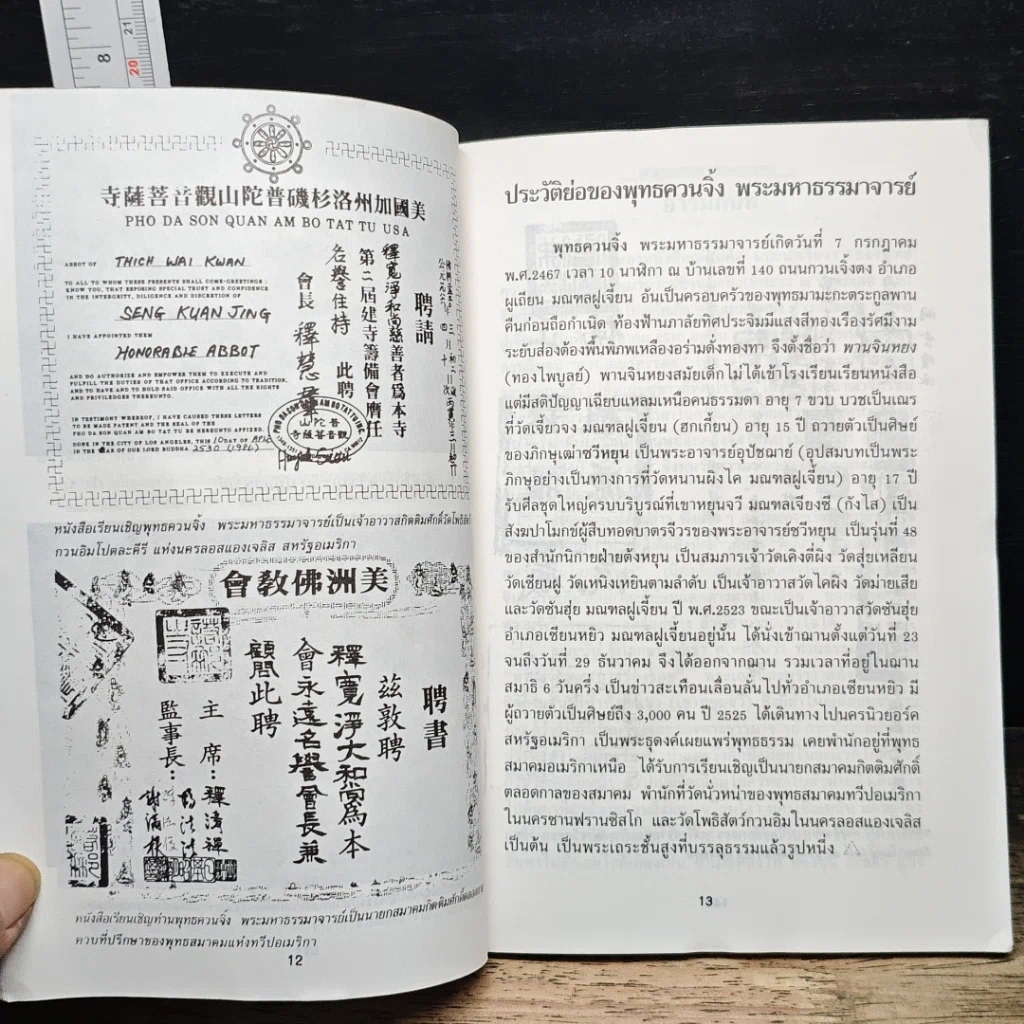 8
21
20
美國加州洛杉磯普陀山觀音菩薩寺
PHO DA SON QUAN AM BO TAT TU USA
ABBOT OF THICH WAI KWAN
TO ALL TO WHOM THESE PRESENTS SHALL COME-GREETINGS:
KNOW YOU, THAT REPOSING SPECIAL TRUST AND CONFIDENCE
IN THE INTERGRITY, DILIGENCE AND DISCRETION OF
SENG KUAN JING
I HAVE APPOINTED THEM
HONORABLE ABBOT
AND DO AUTHORIZE AND EMPOWER THEM TO EXECUTE AND
FULFILL THE DUTIES OF THAT OFFICE ACCORDING TO TRADITION,
AND TO HAVE AND TO HOLD SAID OFFICE WITH ALL THE RIGHTS
AND PRIVILEGES THEREUNTO.
IN TESTIMONY WHEREOF, I HAVE CAUSED THESE LETTERS
TO BE MADE PATENT AND THE SEAL OF THE
PHO DA SON QUAN AM BO TAT TU BE HEREUNTO AFFIXED.
DONE IN THE CITY OF LOS ANGELES, THIS 10 DAY OF
IN THE YEAR OF OUR LORD BUDDHA 2530 (1986)
聘請
釋寬淨和尚慈善者為本寺
第二屆建寺籌備會膺任
名譽住持 此聘
會長 釋慧
หนังสือเรียนเชิญพุทธควนจิ้ง พระมหาธรรมาจารย์เป็นเจ้าอาวาสกิตติมศักดิ์วัดโพธิสัตว์
กวนอิมโปตละคีรี แห่งนครลอสแองเจลิส สหรัฐอเมริกา
美洲佛教會
聘書
茲敦聘
釋寬淨大和尚為本
會永遠名譽會長兼
顧問此聘
主席:
監事長:
หนังสือเรียนเชิญท่านพุทธควนจิ้ง พระมหาธรรมาจารย์เป็นนายกสมาคมกิตติมศักดิ์ตลอดกาล
ควบที่ปรึกษาของพุทธสมาคมแห่งทวีปอเมริกา
12
ประวัติย่อของพุทธควนจิ้ง พระมหาธรรมาจารย์
พุทธควนจิ้ง พระมหาธรรมาจารย์เกิดวันที่ 7 กรกฎาคม
พ.ศ.2467 เวลา 10 นาฬิกา ณ บ้านเลขที่ 140 ถนนกวนเจิ้งตง อำเภอ
ผูเถียน มณฑลฝูเจี้ยน อันเป็นครอบครัวของพุทธมามะกะตระกูลพาน
คืนก่อนถือกำเนิด ท้องฟ้านภาลัยทิศประจิมมีแสงสีทองเรืองรัศมีงาม
ระยับส่องต้องพื้นพิภพเหลืองอร่ามดั่งทองทา จึงตั้งชื่อว่า พานจินหยง
(ทองไพบูลย์) พานจินหยงสมัยเด็กไม่ได้เข้าโรงเรียนเรียนหนังสือ
แต่มีสติปัญญาเฉียบแหลมเหนือคนธรรมดา อายุ 7 ขวบ บวชเป็นเณร
ที่วัดเจี้ยวจง มณฑลฝูเจี้ยน (ฮกเกี้ยน) อายุ 15 ปี ถวายตัวเป็นศิษย์
ของภิกษุเฒ่าซวีหยุน เป็นพระอาจารย์อุปัชฌาย์ (อุปสมบทเป็นพระ
ภิกษุอย่างเป็นทางการที่วัดหนานผิงไค มณฑลฝูเจี้ยน) อายุ 17 ปี
รับศีลชุดใหญ่ครบบริบูรณ์ที่เขาหยุนจวี มณฑลเจียงซี (กังไส) เป็น
สังฆปาโมกข์ผู้สืบทอดบาตรจีวรของพระอาจารย์ซวีหยุน เป็นรุ่นที่ 48
ของสำนักนิกายฝ่ายต้งหยุน เป็นสมภารเจ้าวัดเคิงตี่ผิง วัดสุ่ยเหลียน
วัดเซียนฝู วัดเหนิงเหยินตามลำดับ เป็นเจ้าอาวาสวัดไคผิง วัดม่ายเสีย
และวัดซันฮุ่ย มณฑลฝูเจี้ยน ปี พ.ศ.2523 ขณะเป็นเจ้าอาวาสวัดซันฮุ่ย
อำเภอเซียนหยิว มณฑลฝูเจี้ยนอยู่นั้น ได้นั่งเข้าฌานตั้งแต่วันที่ 23
จนถึงวันที่ 29 ธันวาคม จึงได้ออกจากฌาน รวมเวลาที่อยู่ในฌาน
สมาธิ 6 วันครึ่ง เป็นข่าวสะเทือนเลื่อนลั่นไปทั่วอำเภอเซียนหยิว มี
ผู้ถวายตัวเป็นศิษย์ถึง 3,000 คน ปี 2525 ได้เดินทางไปนครนิวยอร์ค
สหรัฐอเมริกา เป็นพระธุดงค์เผยแพร่พุทธธรรม เคยพำนักอยู่ที่พุทธ
สมาคมอเมริกาเหนือ ได้รับการเรียนเชิญเป็นนายกสมาคมกิตติมศักดิ์
ตลอดกาลของสมาคม พำนักที่วัดนั่วหน่าของพุทธสมาคมทวีปอเมริกา
ในนครซานฟรานซิสโก และวัดโพธิสัตว์กวนอิมในนครลอสแองเจลิส
เป็นต้น เป็นพระเถระชั้นสูงที่บรรลุธรรมแล้วรูปหนึ่ง △
13